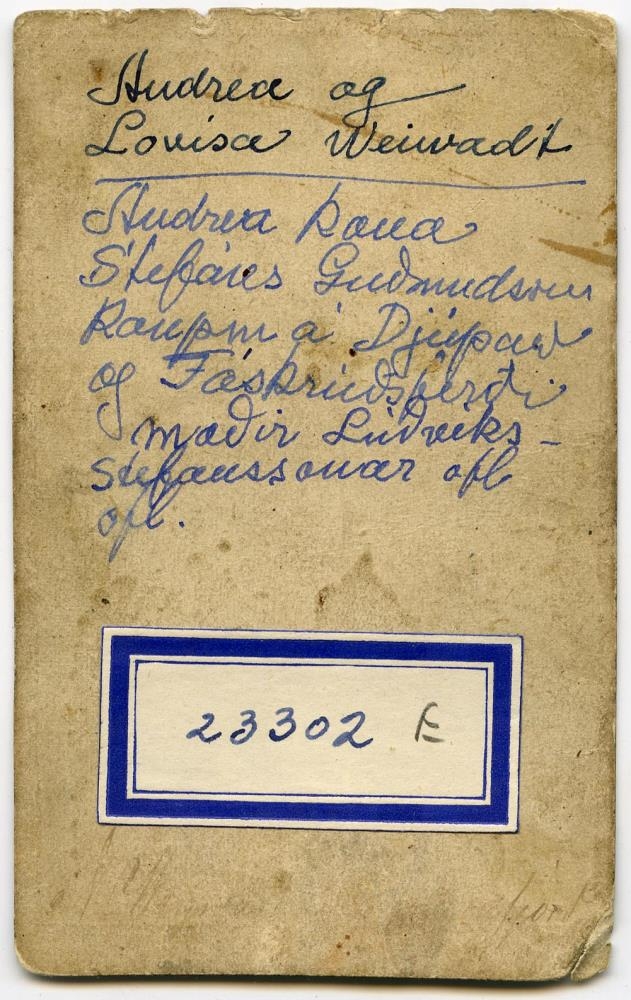 Andrea og
Lovísa Weiwadt
Andrea kona
Stefáns Guðmundsson
Kaupm á Djúpav
og Fáskrúðsfirði
móðir Lúðvíks-
Stefanssonar ofl
ofl.
23302 E